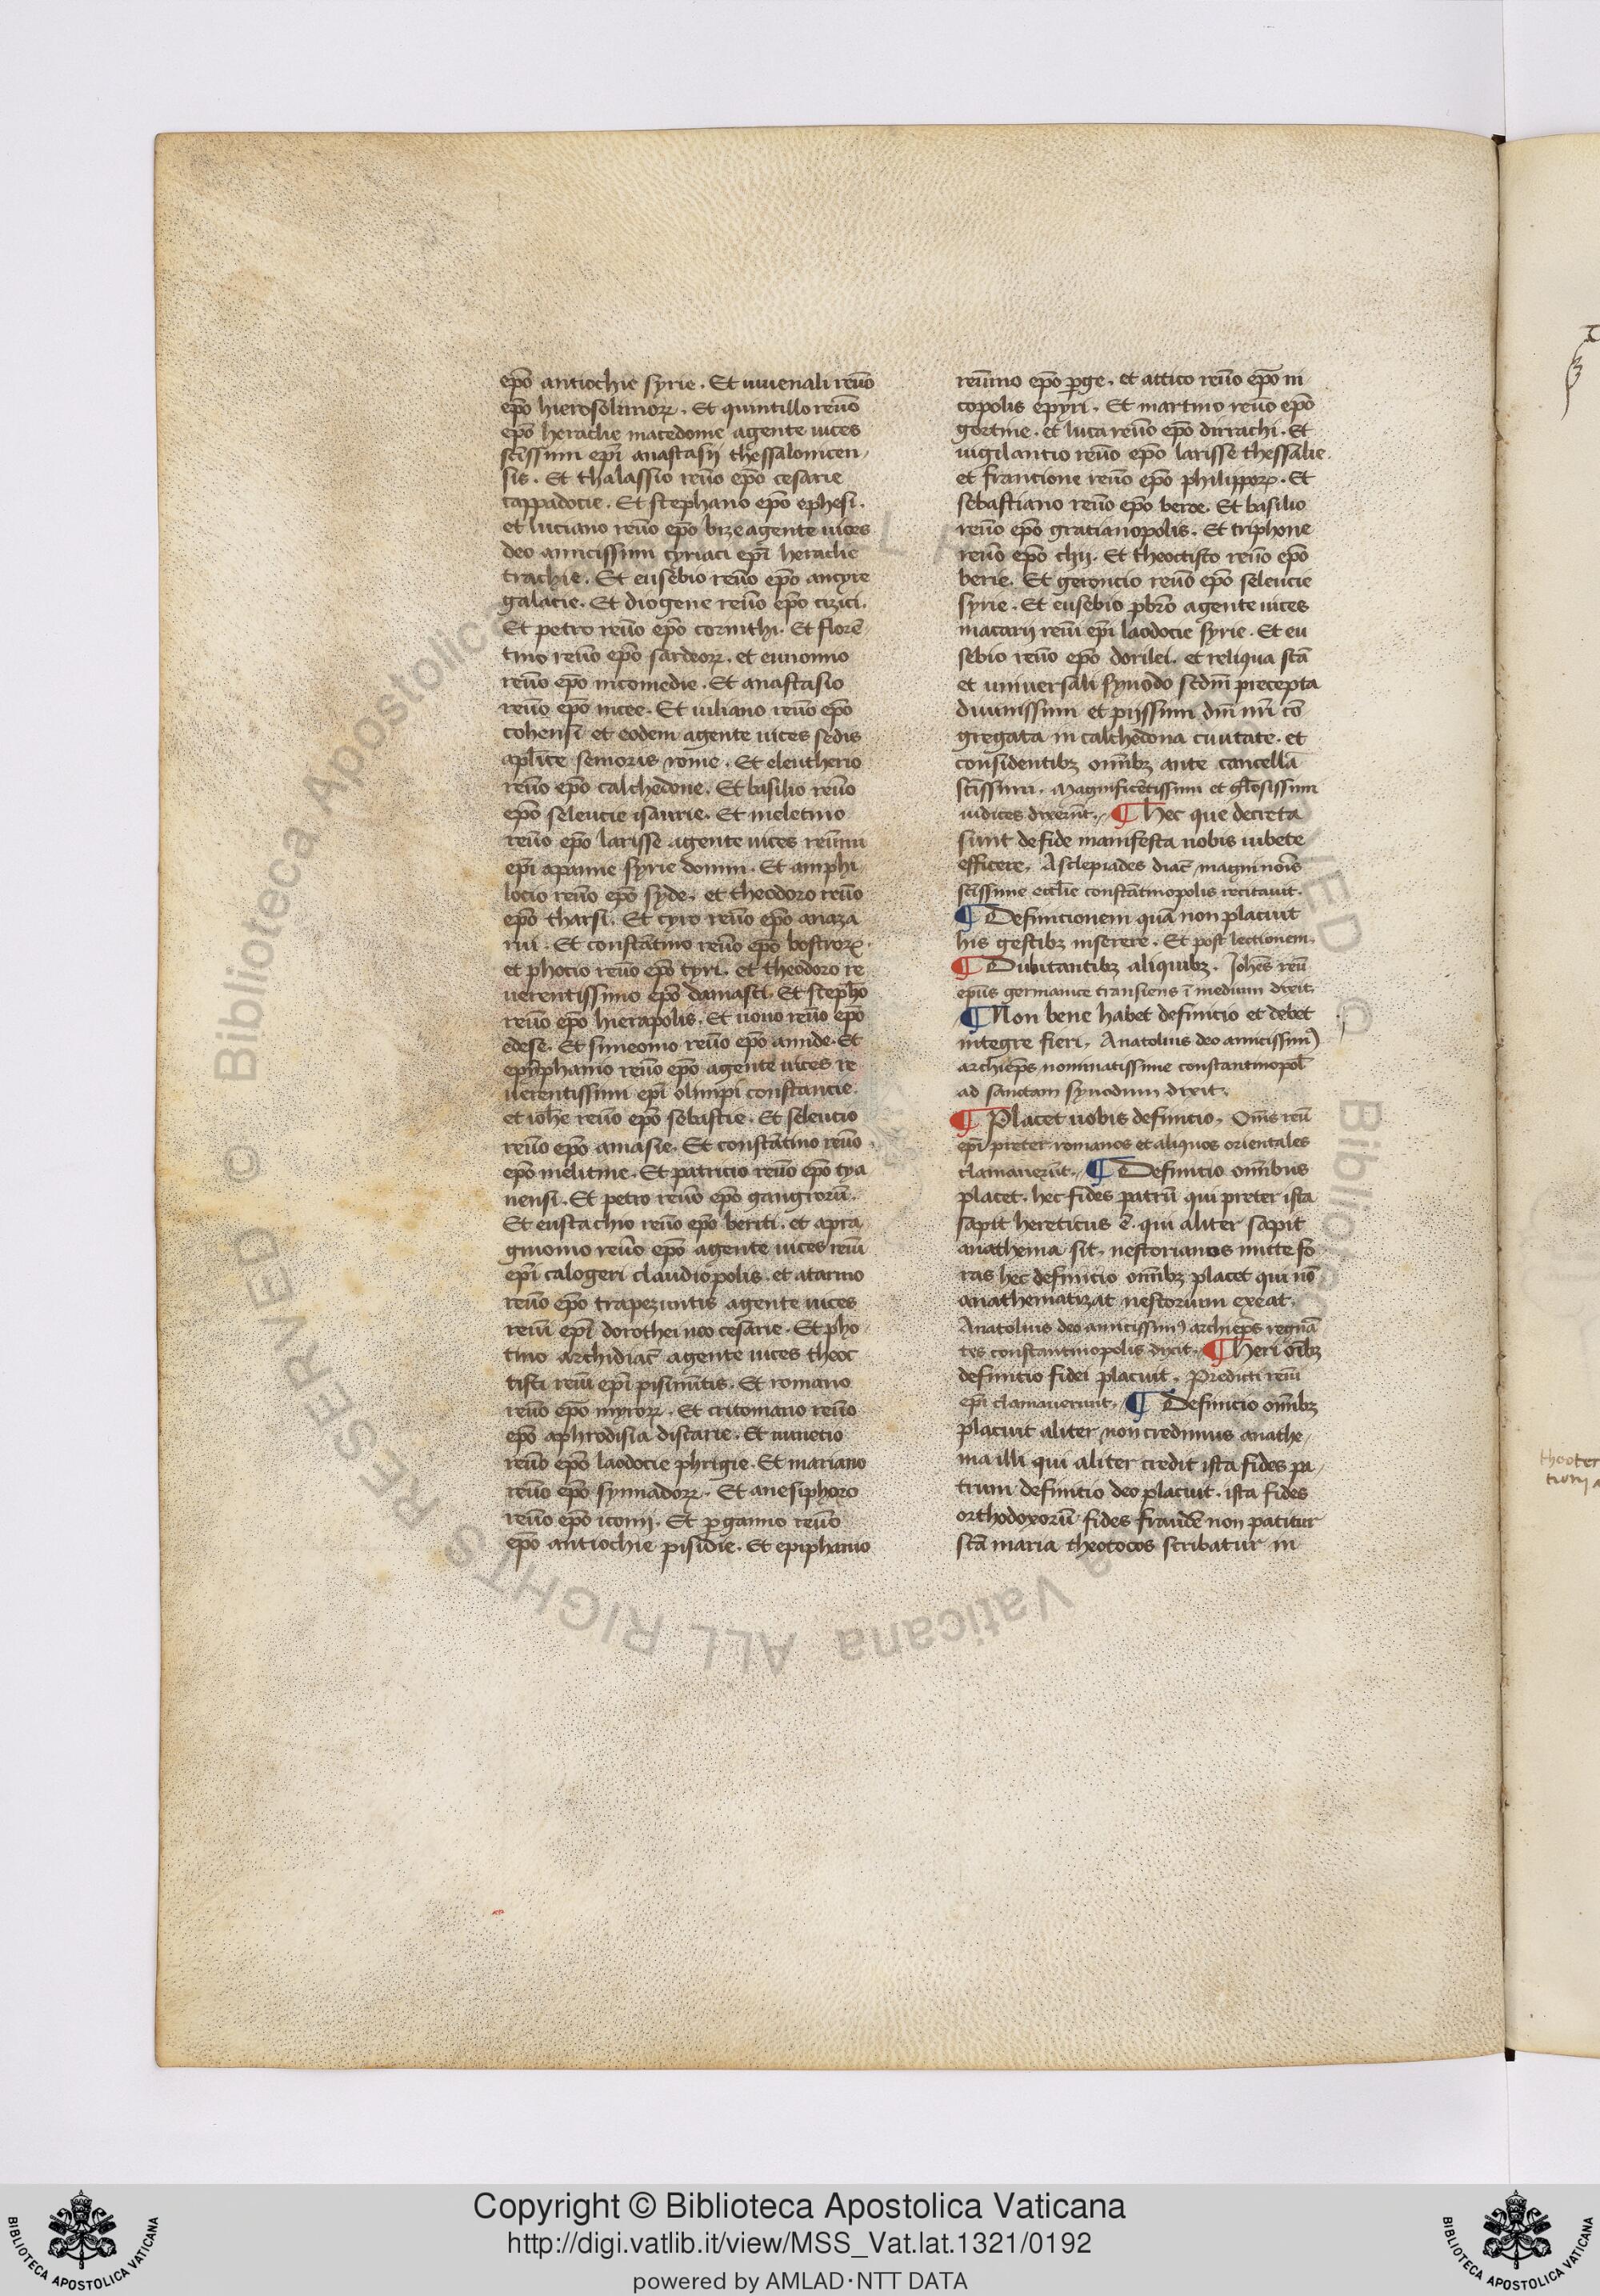 epō antiochie syrie. Et iuuenali reuō
epō hierosolimoꝝ. Et quintillo reuō
epō heraclie macedonie agente uices
sc̄issimi ep̄i anastasij thessalonicen
sis. Et thalassio reuō epō cesarie
cappadocie. Et stephano epō ephesi.
et luciano reuō epō bize agente uices
deo amicissimi cyriaci ep̄i heraclie
trachie. Et eusebio reuō epō ancyre
galacie. Et diogene reuō epō cizici.
Et petro reuō epō corinthi. Et florē
tino reuō epō sardeoꝝ. et eunomio
reuō epō nicomedie. Et anastasio
reuō epō nicee. Et iuliano reuō epō
cohensi et eodem agente uices sedis
aplice senioris rome. Et eleutherio
reuō epō calchedone. Et basilio reuō
epō seleucie isaurie. Et meletino
reuō epō larisse agente uices reuīmi
ep̄i apamie syrie domni. Et amphi
locio reuō epō syde. et theodoro reuō
epō tharsi. Et cyro reuō epō anaza
rui. Et constātino reuō epō bostroꝝ.
et phocio reuō epō tyri. et theodoro re
uerentissimo epō damasci. Et stepho
reuō epō hierapolis. Et nono reuō epō
edese. Et simeonio reuō epō amide. Et
epyphanio reuō epō agente uices re
uerentissimi ep̄i olimpi constancie.
et iohe reuō epō sebastie. Et seleucio
reuō epō amasie. Et constātino reuō
epō melitine. Et patricio reuō epō tya
nensi. Et petro reuō epō gangrorū.
Et eustachio reuō epō beriti. et apra
gmonio reuō epō agente uices reuī
ep̄i calogeri claudiopolis. et atarmo
reuō epō trapezuntis agente uices
reuī ep̄i dorothei neo cesarie. Et pho
tino archidiac̄ agente uices theoc
tisti reuī ep̄i pisinūtis. Et romano
reuō epō myroꝝ. Et critomano reuō
epō aphrodisia discarie. Et nunecio
reuō epō laodocie phrigie. Et mariano
reuō epō synnadoꝝ. Et anesiphoro
reuō epō iconij. Et ꝑgamio reuō
epō antiochie pisidie. Et epiphanio
reuīmo epō ꝑge. et attico reuō epō ni
copolis epyri. Et martino reuō epō
gortine. et luca reuō epō dirrachi. Et
uigilantio reuō epō larisse thessalie.
et francione reuō epō philippoꝝ. Et
sebastiano reuō epō beroe. Et basilio
reuō epō gratianopolis. Et triphone
reuō epō chij. Et theoctisto reuō epō
berie. Et geroncio reuō epō seleucie
syrie. Et eusebio p̄bro agente uices
macarij reuī ep̄i laodocie syrie. Et eu
sebio reuō epō dorilei. et reliqua sc̄a
et uniuersali synodo sc̄dm precepta
diuinissimi et pijssimi dn̄i nr̄i cō
gregata in calchedona ciuitate. et
considentibꝫ omībꝫ ante cancella
sc̄issimi. Magnificētissimi et gl̄osissimi
iudices dixerūt. ¶ Hec que decreta
sunt de fide manifesta nobis iubete
efficere. Asclepiades diac̄ magni nōis
sc̄issime eccl̄ie constātinopolis recitauit.
¶ Definicionem quā non placuit
his gestibꝫ inserere. Et post lectionem.
¶ Dubitantibꝫ aliquibꝫ. Joh̄es reuī
ep̄us germanice transiens ī medium dixit.
¶ Non bene habet definicio et debet
integre fieri. Anatolius deo amicissim9
archiep̄s nominatissime constantinopol̄
ad sanctam synodum dixit.
¶ Placet uobis definicio. Om̄s reuī
ep̄i preter romanos et aliquos orientales
clamauerūt. ¶ Definicio omībus
placet. hec fides patrū qui preter ista
sapit hereticus ē. qui aliter sapit
anathema sit. nestorianos mitte fo
ras hec definicio omībꝫ placet qui nō
anathematizat nestorium exeat.
Anatolius deo amicissim9 archiep̄s regnā
tes constantinopolis dixit. ¶ Heri oībꝫ
definitio fidei placuit. Predicti reuī
ep̄i clamauerunt. ¶ Definicio omībꝫ
placuit aliter non credimus anathe
ma illi qui aliter credit ista fides pa
trum definitio deo placuit. ista fides
orthodoxorū fides fraudē non patitur
sc̄a maria theotocos scribatur in
theoter
© Biblioteca Apostolica Vaticana ALL RIGHTS RESERVED
Copyright © Biblioteca Apostolica Vaticana
http://digi.vatlib.it/view/MSS_Vat.lat.1321/0192
powered by AMLAD·NTT DATA
BIBLIOTECA APOSTOLICA VATICANA
BIBLIOTECA APOSTOLICA VATICANA